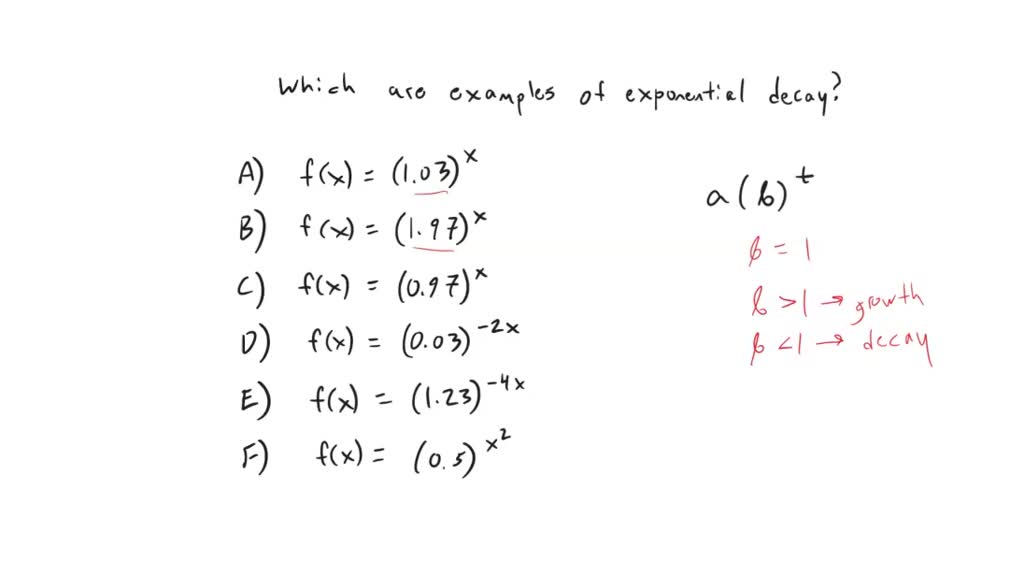 Which are examples of exponential decay?
A) f(x) = (1.03)^x
B) f(x) = (1.97)^x
C) f(x) = (0.97)^x
D) f(x) = (0.03)^-2x
E) f(x) = (1.23)^-4x
F) f(x) = (0.5)^x^2
a(b)^t
b = 1
b > 1 → growth
b < 1 → decay